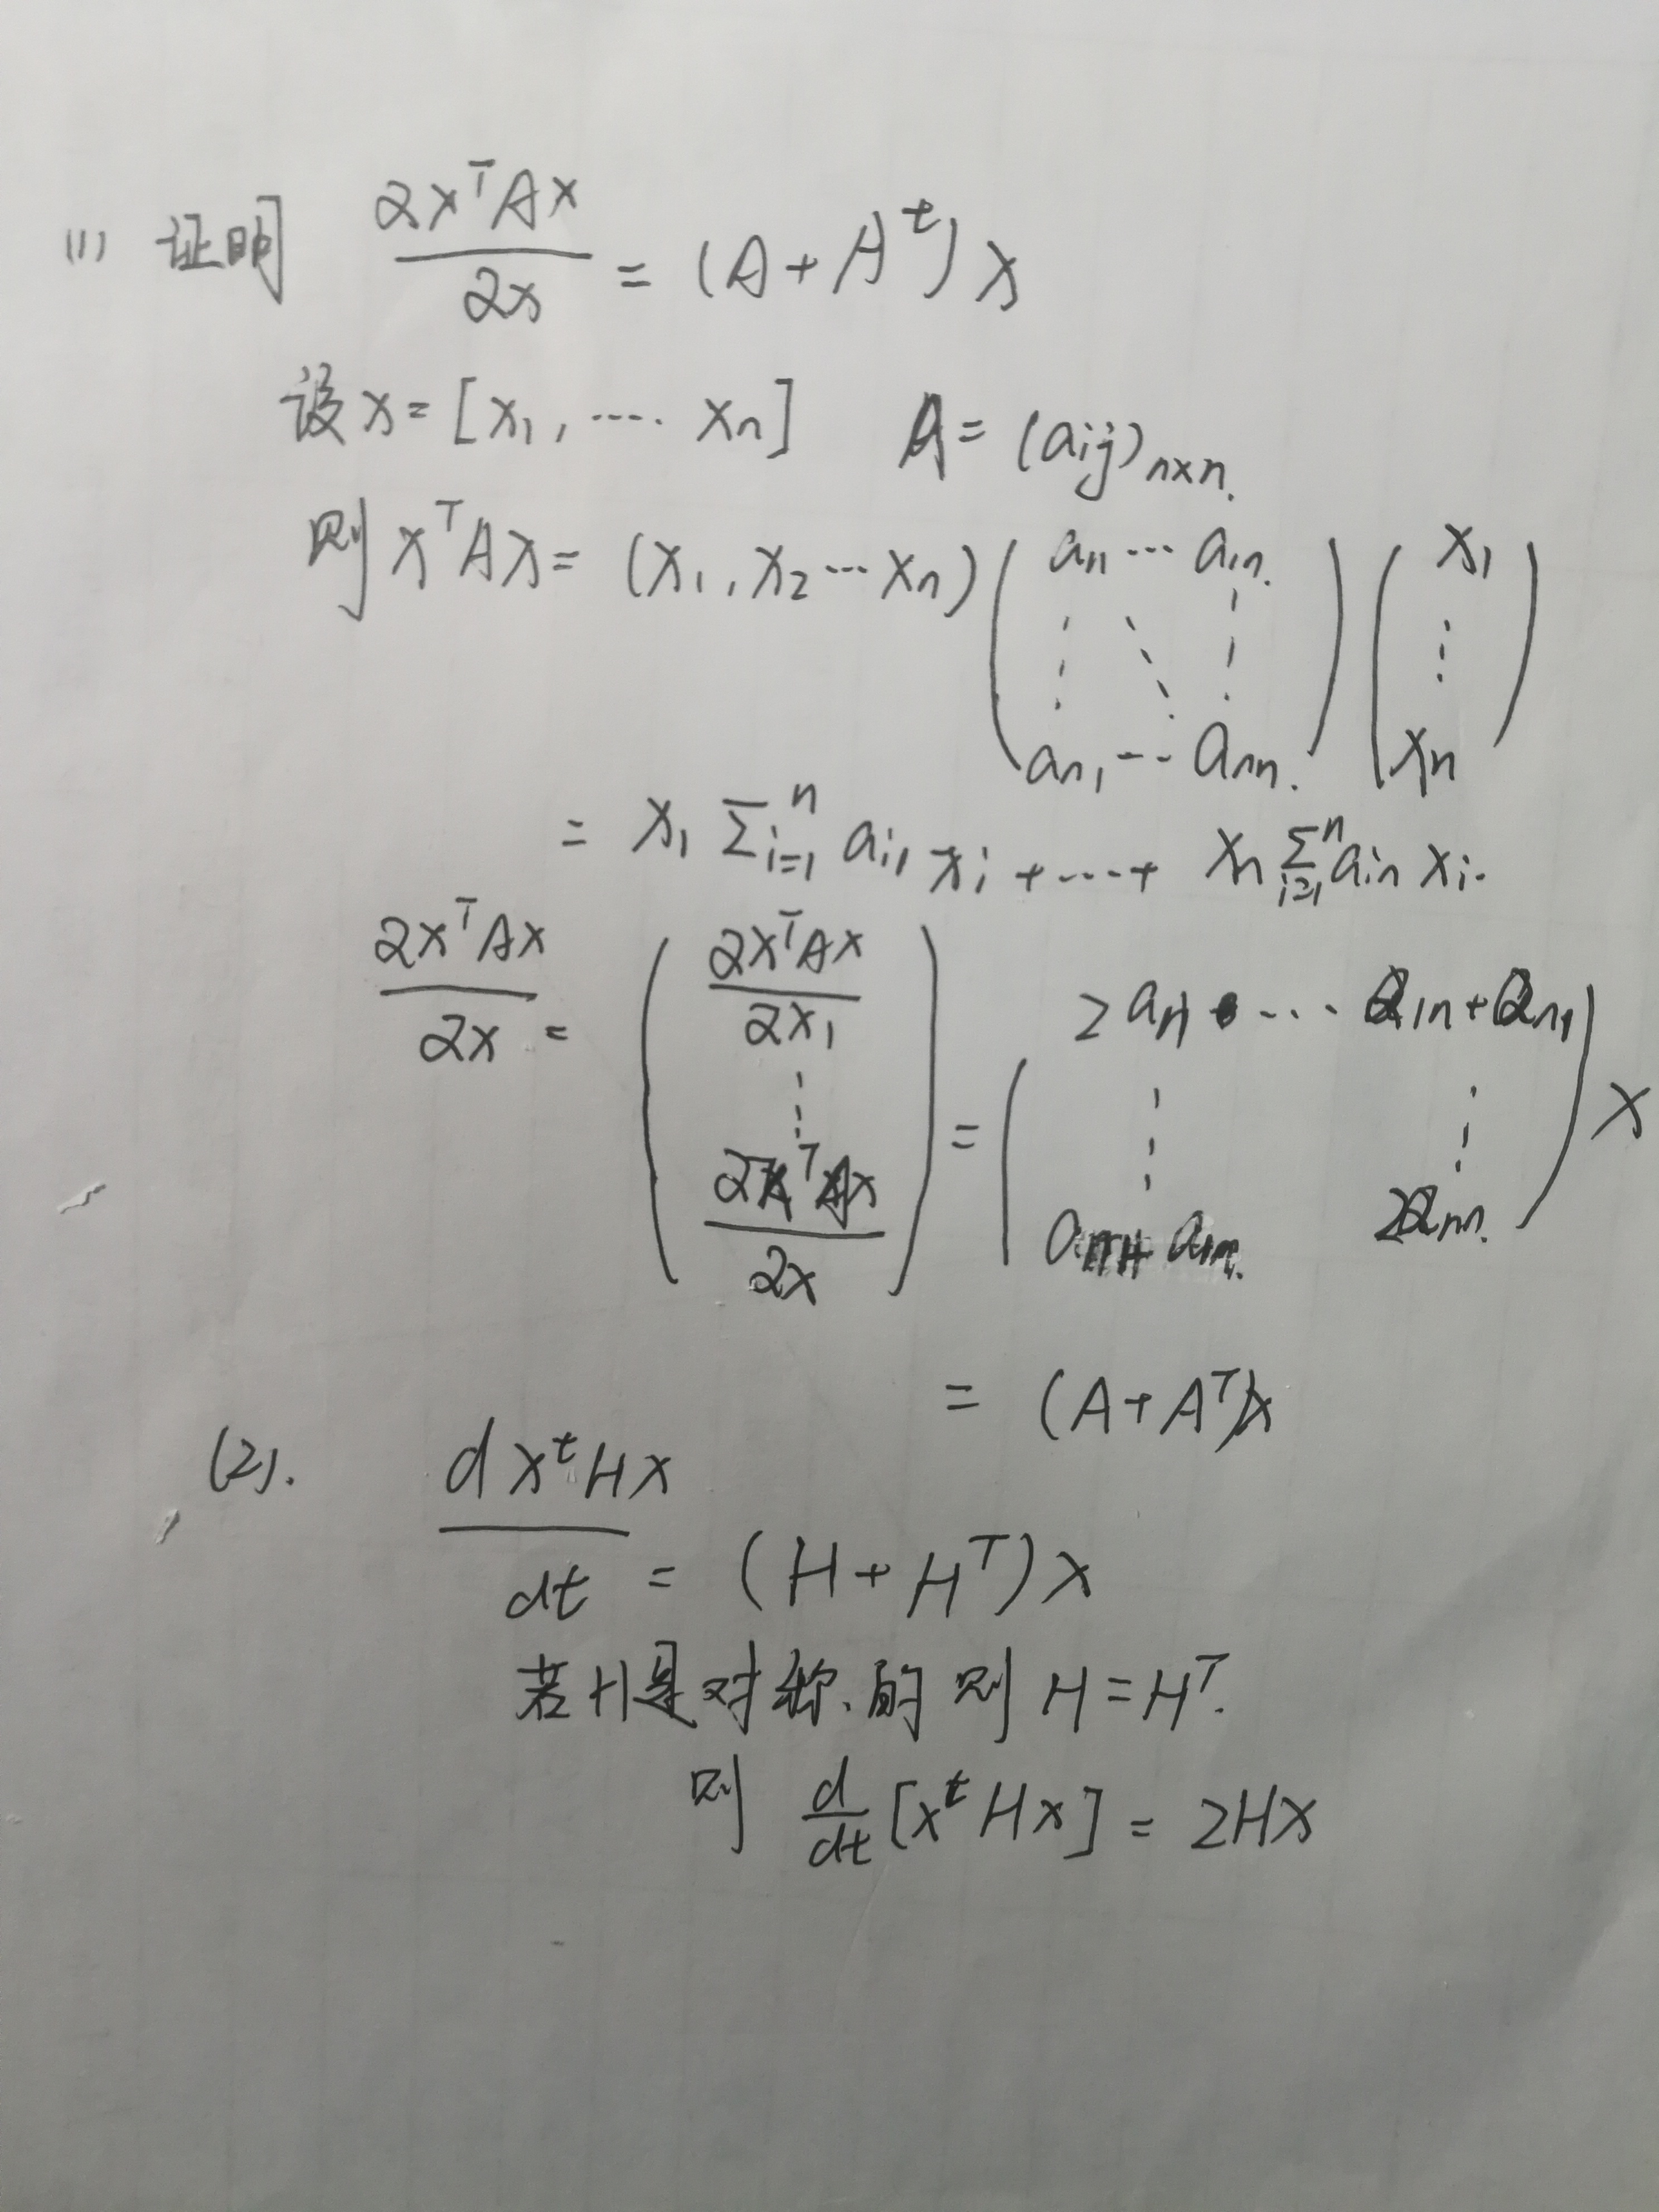 (1) 证明 ∂x^T A x / ∂x = (A + A^t) x
设 x = [x_1, ···· x_n] A = (a_ij)_n×n.
则 x^T A x = (x_1, x_2 ··· x_n) ( a_11 ··· a_1n. ⋮ ⋱ ⋮ a_n1 ··· a_nn. ) ( x_1 ⋮ x_n )
= x_1 Σ_{i=1}^n a_i1 x_i + ···· + x_n Σ_{i=1}^n a_in x_i.
∂x^T A x / ∂x = ( ∂x^T A x / ∂x_1 ⋮ ∂x^T A x / ∂x ) = ( 2a_11 ··· a_1n + a_n1 ⋮ ⋮ a_n1 + a_1n. 2a_nn. ) x
= (A + A^T) x
(2). d x^t H x / dt = (H + H^T) x
若 H 是对称的 则 H = H^T.
则 d/dt [x^t H x] = 2Hx